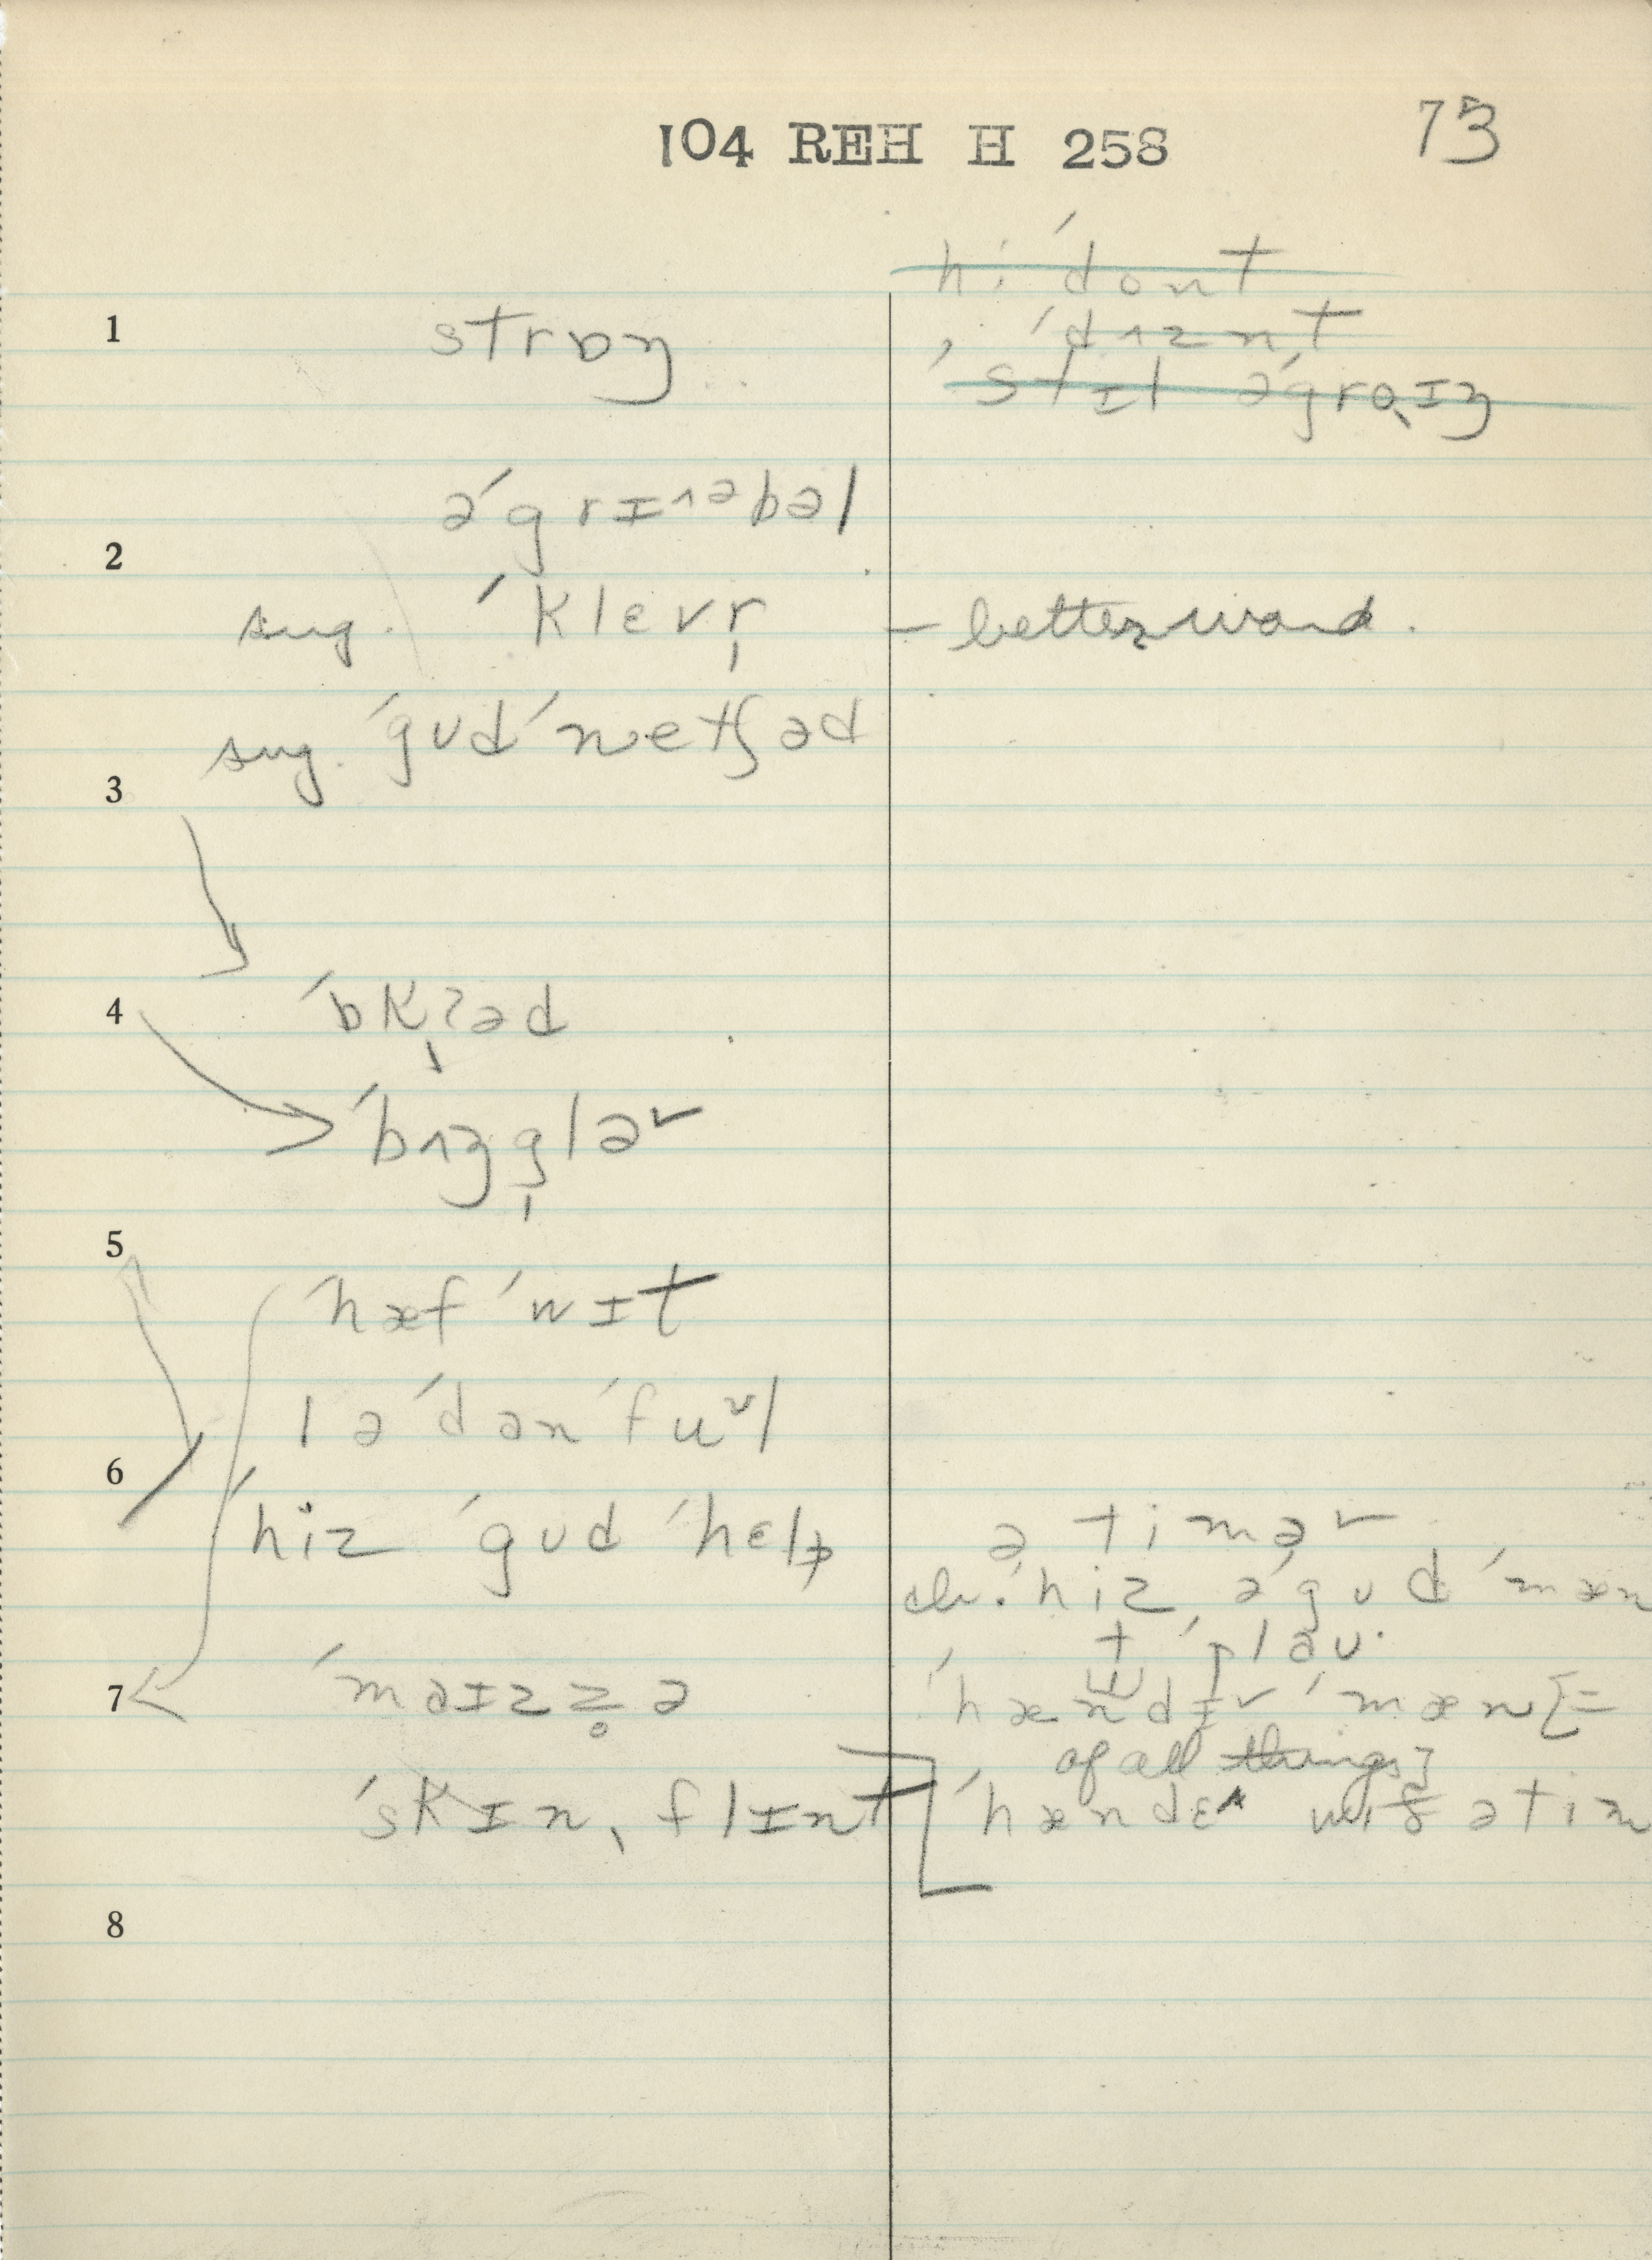 104 REH H 258
73
1
strɒŋ
hi ˈdont
ˈdʌznt
ˈstɪl əˈgroɪŋ
əˈgrɪʌəbəl
2
sug. ˈklɛvr̩
– better word.
sug. ˈgud ˈnetʃəd
3
4
ˈbʌŋglər
5
ˈhæf ˈwɪt
ˈhiz ˈgud ˈhɛlp
6
ə timər
ch. ˈhiz əˈgud ˈmæn
t ˈplau
7
ˈmaɪzz̥ə
ˈhændɪr ˈmæn [=
of all things]
ˈskɪn, flɪnt
8